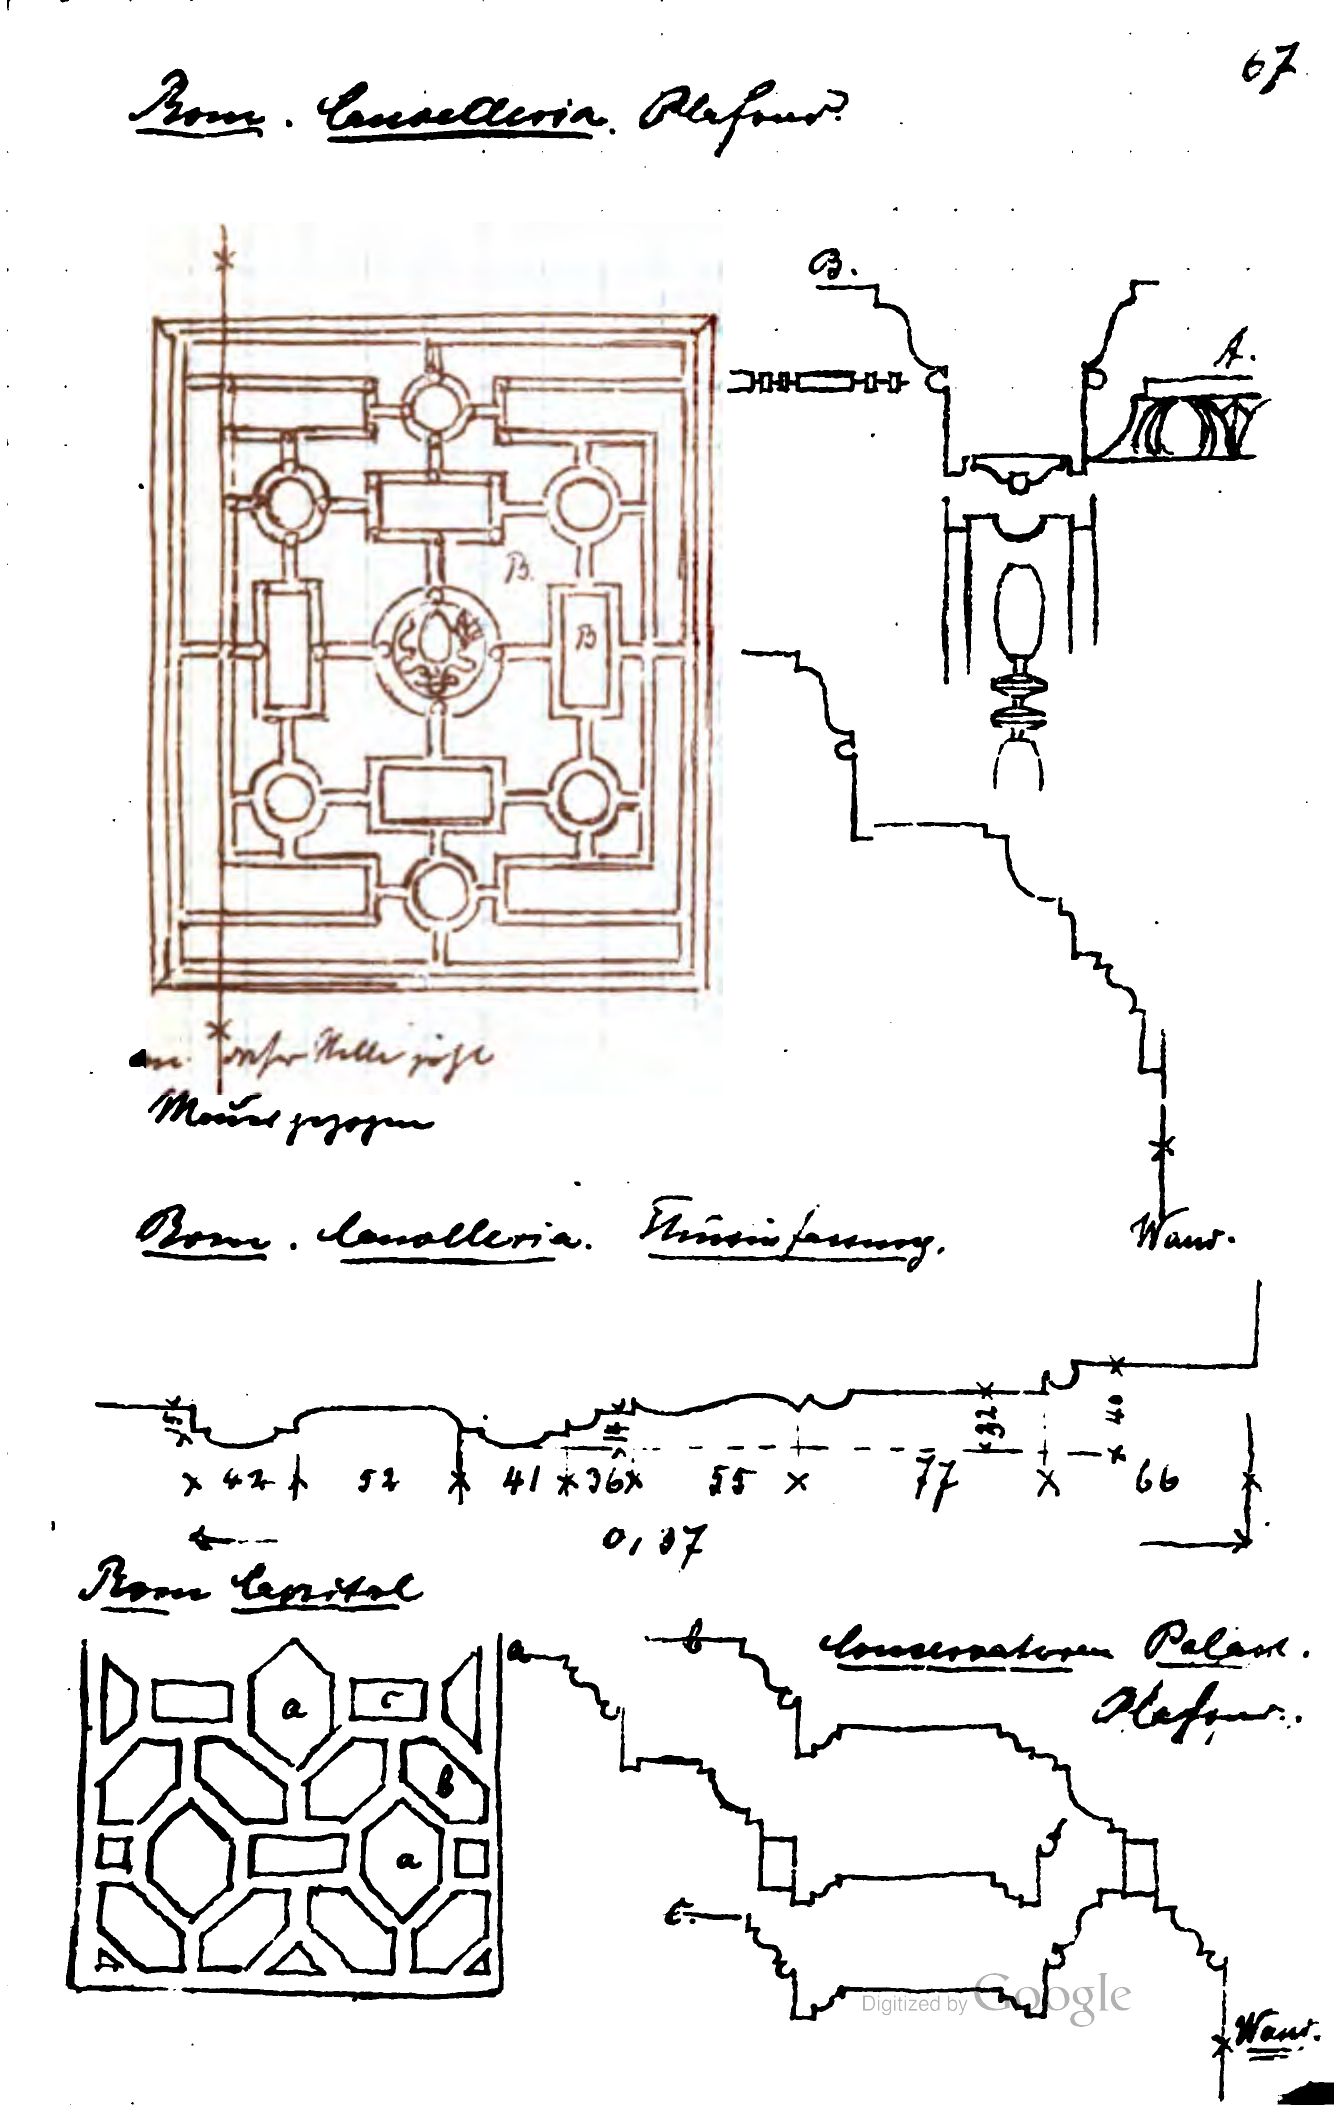 67
Rom. Cancelleria. Plafond
B.
A.
B.
B
an dieser Stelle jetzt
Mauer gezogen
Wand.
Rom. Cancelleria. Thüreinfassung.
15
14
32
40
42 52 41 36 55 77 66
0,37
Rom Capitol
Conservatoren Palast.
Plafond.
a
b
a
c
b
a
c.
Wand.
Digitized by Google